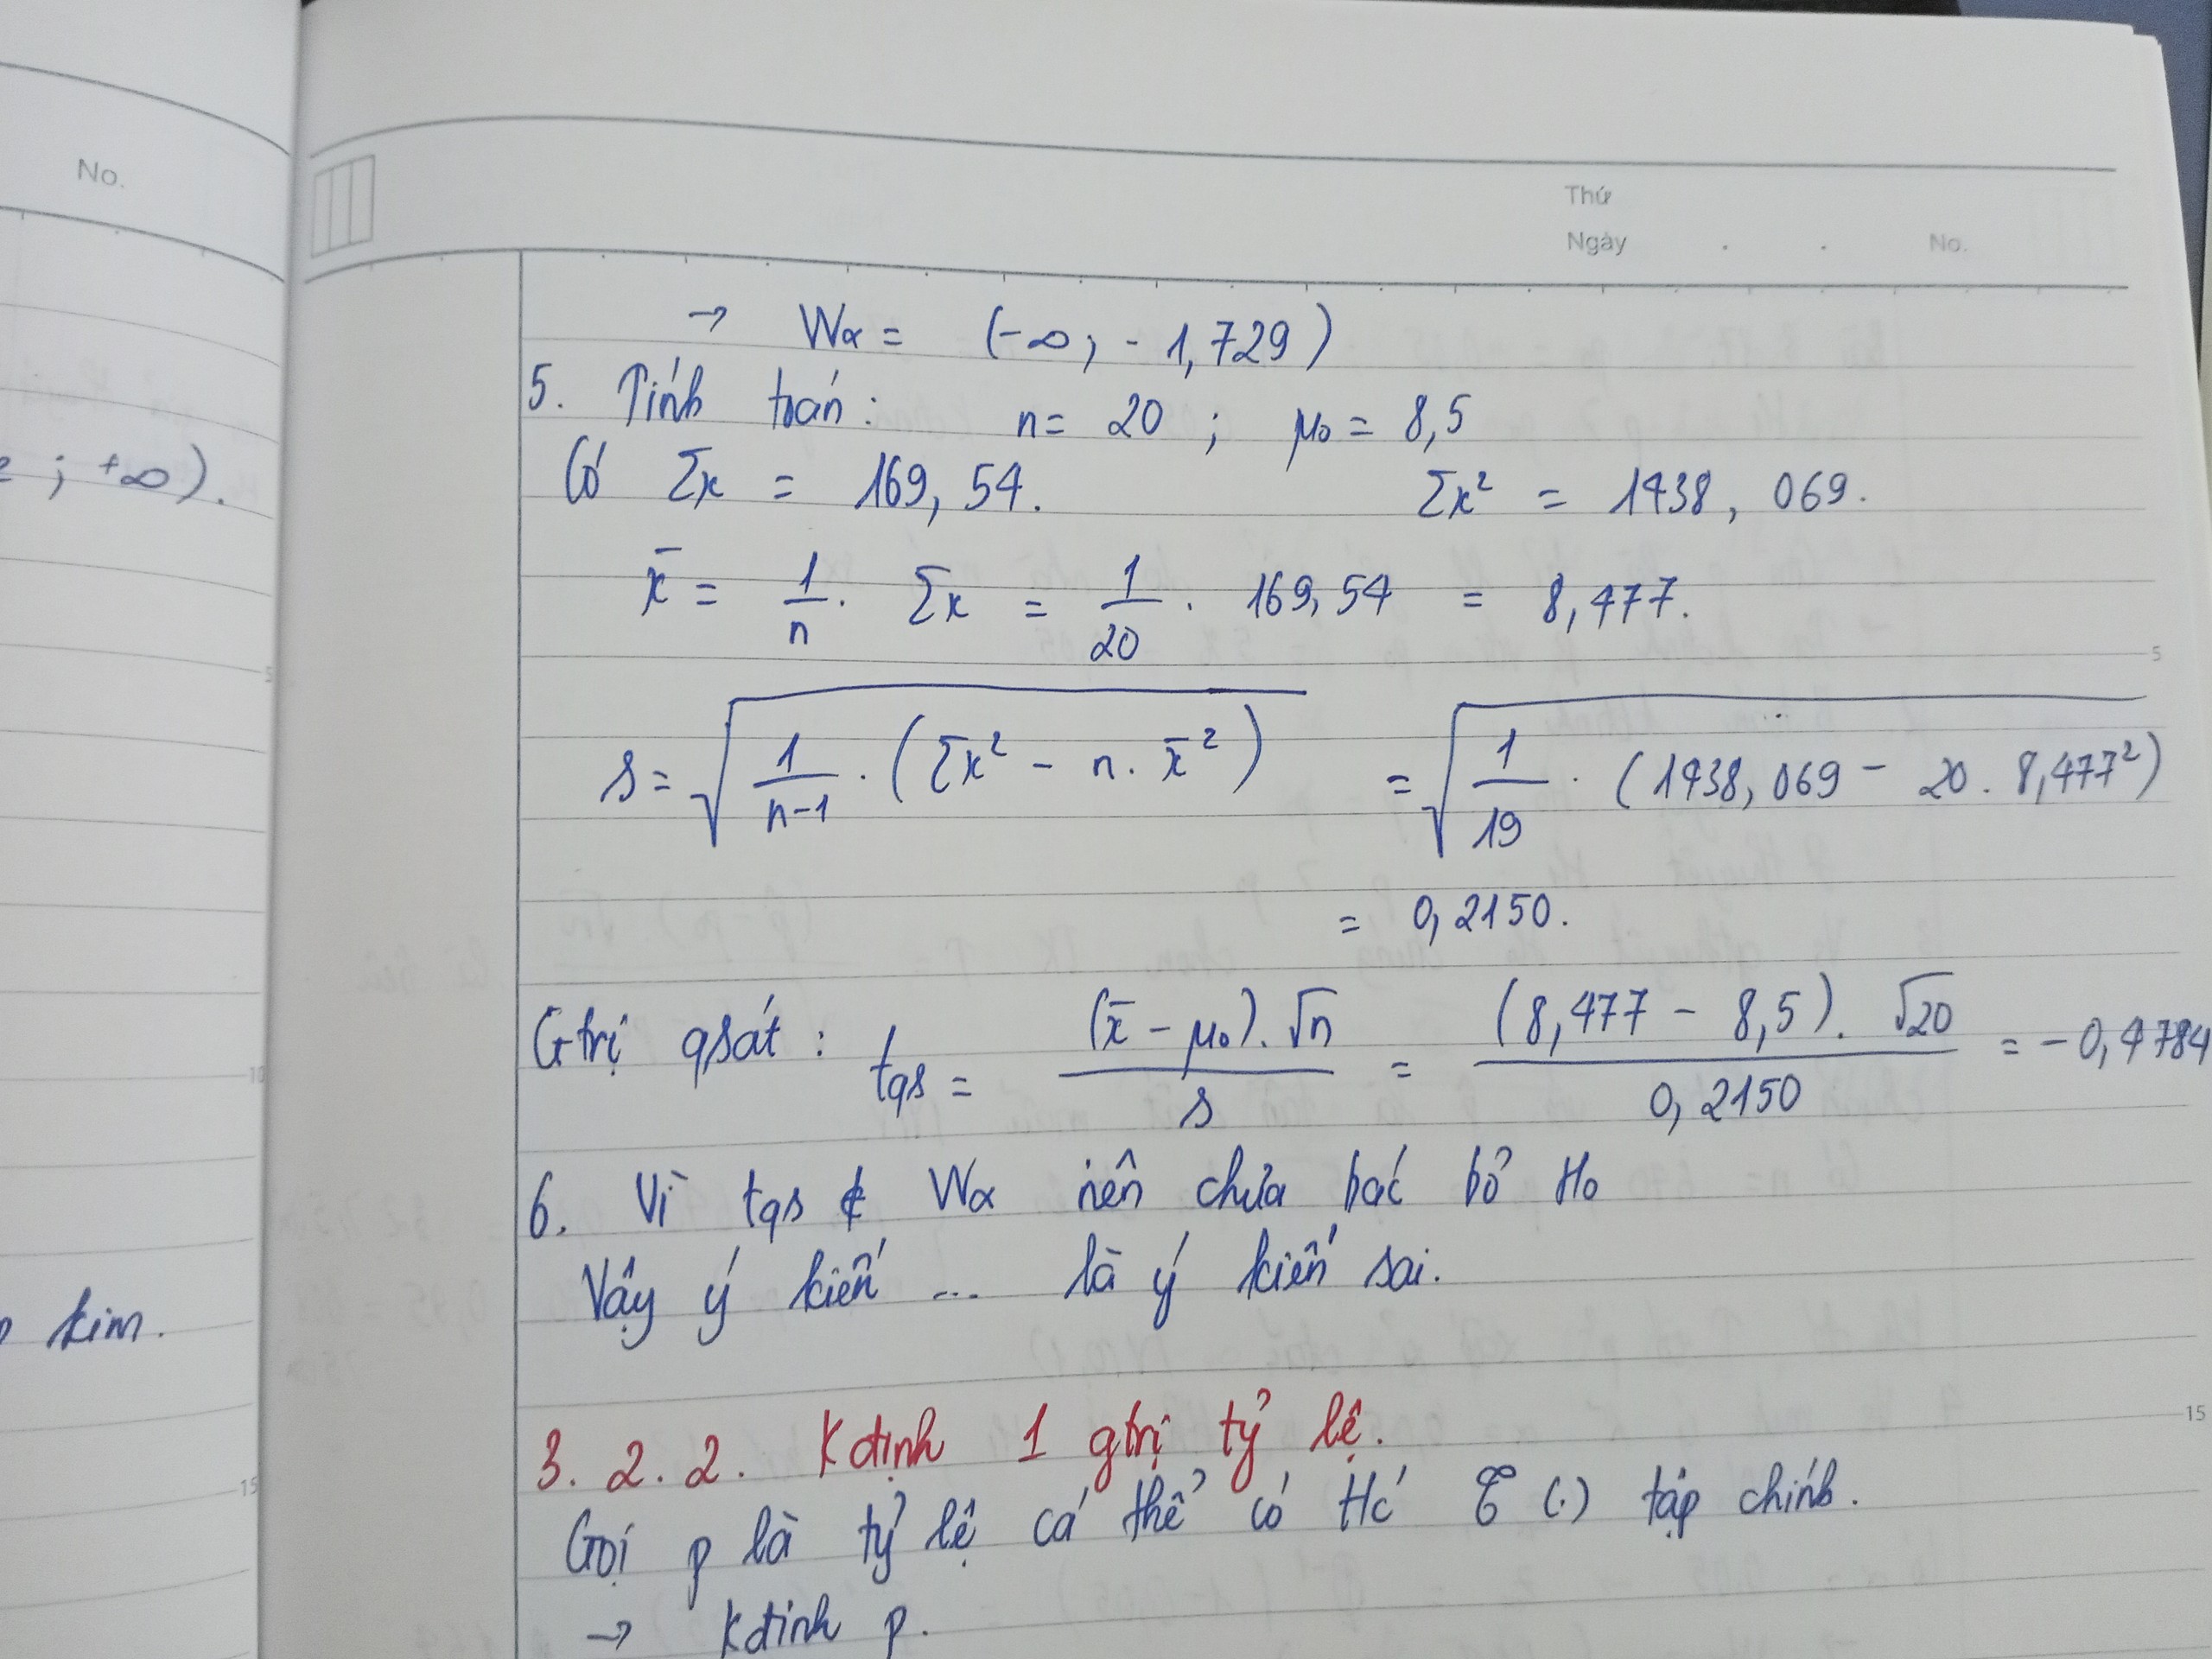 No.
; +∞).
kim.
Thứ
Ngày . . No.
→ Wα = (-∞; - 1,729)
5. Tính toán: n = 20 ; μ₀ = 8,5
Có Σx = 169,54. Σx² = 1438,069.
x̄ = 1/n . Σx = 1/20 . 169,54 = 8,477.
5
s = √(1/(n-1) . (Σx² - n. x̄²)) = √(1/19 . (1438,069 - 20. 8,477²))
= 0,2150.
Gtrị qsát : tqs = (x̄ - μ₀).√n / s = (8,477 - 8,5). √20 / 0,2150 = -0,4784
10
6. Vì tqs ∉ Wα nên chưa bác bỏ H₀
Vậy ý kiến ... là ý kiến sai.
15
3.2.2. Kđịnh 1 gtrị tỷ lệ.
15
Gọi p là tỷ lệ cá thể có t/c τ (.) tập chính.
→ Kđịnh p.